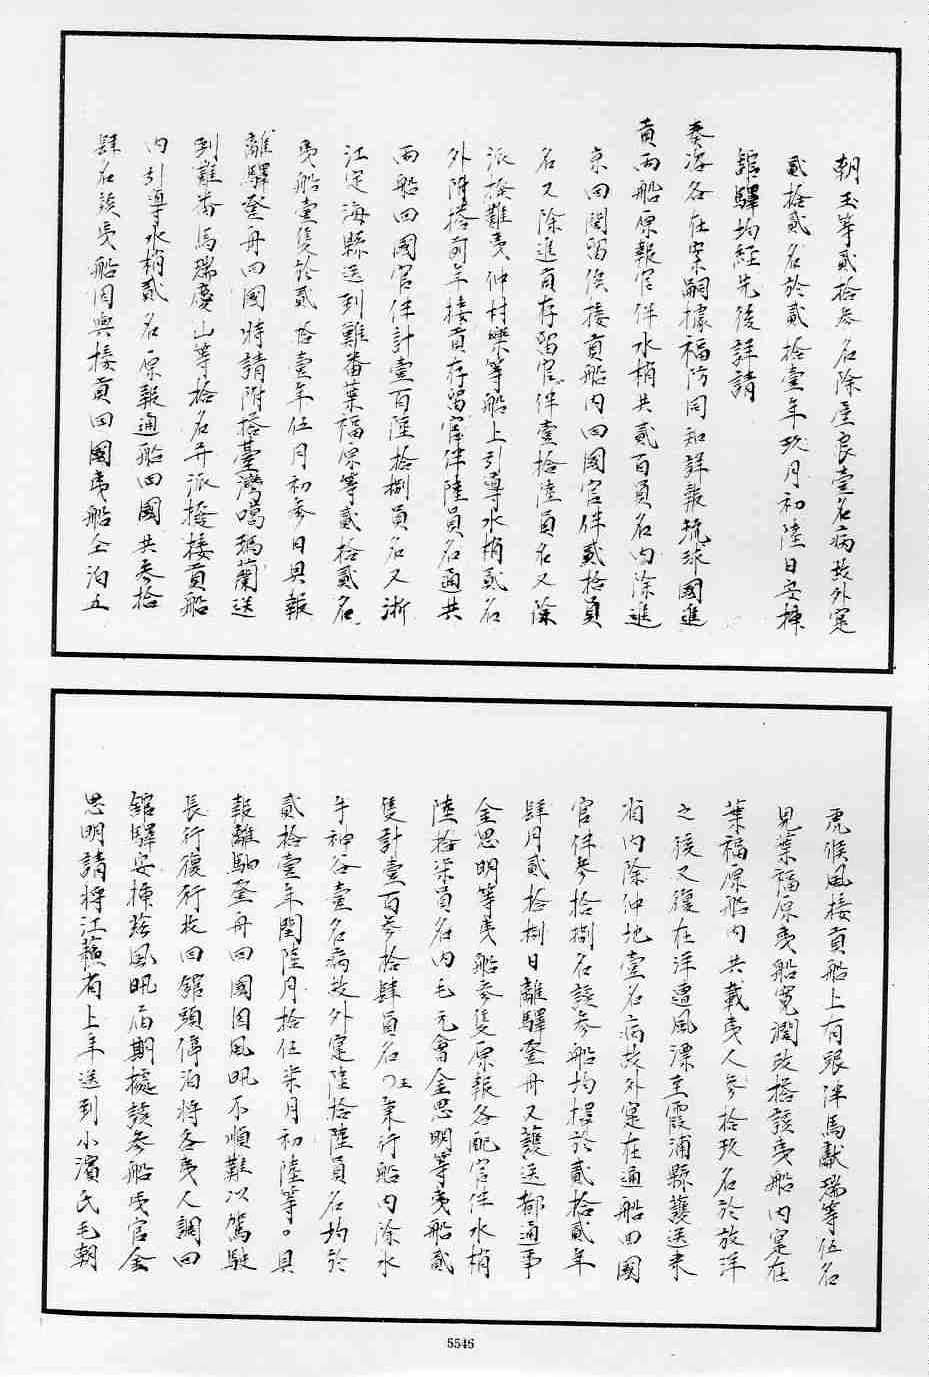 朝玉等貳拾叁名除屋良壹名病故外寔
貳拾貳名於貳拾壹年玖月初陸日安揷
舘驛均經先後詳請
奏咨各在案嗣據福防同知詳報琉球國進
貢兩船原報官伴水梢共貳百員名內除進
京回閩留俟接貢船內回國官伴貳拾員
名又除進貢存留官伴壹拾陸員名又除
派撥難夷仲村樂等船上引導水梢貳名
外附搭前年接貢存留官伴陸員名通共
兩船回國官伴計壹百陸拾捌員名又浙
江定海縣送到難番葉福原等貳拾貳名
夷船壹隻於貳拾壹年伍月初叁日具報
離驛登舟回國時請附搭臺灣噶瑪蘭送
到難番馬瑞慶山等拾名并派撥接貢船
內引導水梢貳名原報通船回國共叁拾
肆名該夷船因與接貢回國夷船仝泊五
虎候風接貢船上有跟伴馬獻瑞等伍名
見葉福原夷船寬濶改搭該夷船內寔在
葉福原船內共載夷人叁拾玖名於放洋
之後又復在洋遭風漂至霞浦縣護送來
省內除仲地壹名病故外寔在通船回國
官伴叁拾捌名該叁船均撥於貳拾貳年
肆月貳拾捌日離驛登舟又護送都通事
金思明等夷船叁隻原報各配官伴水梢
陸拾柒員名內毛元會金思明等夷船貳
隻計壹百叁拾肆員名王秉行船內除水
手神谷壹名病故外寔陸拾陸員名均於
貳拾壹年閏陸月拾伍柒月初陸等。具
報離驛登舟回國因風帆不順難以駕駛
長行復行收回舘頭停泊將各夷人調回
舘驛安揷茲風帆屆期據該叁船夷官金
思明請將江蘇省上年送到小濱氏毛朝
5546